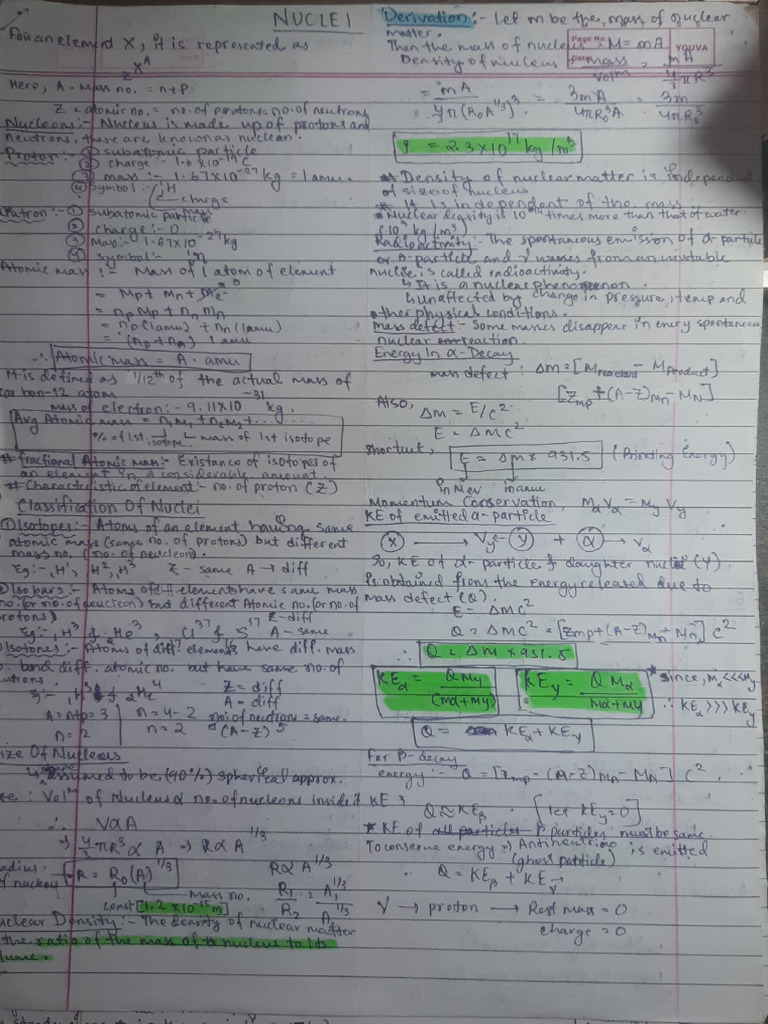 NUCLEI
For an element X, it is represented as
zXA
Here, A = Mass no. = n+p
Z = atomic no. = no. of protons = no. of neutrons
Nucleons :- Nucleus is made up of protons and
neutrons, these are known as nuclean.
Proton :- ① subatomic particle
② charge :- 1.6×10⁻¹⁹C
③ mass :- 1.67×10⁻²⁷ kg = 1amu.
④ symbol :- H
charge
① subatomic particle
② charge :- 0
③ Mass :- 1.67×10⁻²⁷kg
④ symbol :- n
Atomic mass :- Mass of 1 atom of element
= Mp + Mn + Me
= np Mp + nn mn
= np (1amu) + nn (1amu)
= (np + nn) 1amu
∴ Atomic mass = A. amu
It is defined as 1/12th of the actual mass of
carbon-12 atom
mass of electron :- 9.11×10⁻³¹ kg.
Avg Atomic mass = n₁M₁ + n₂M₂ + ...
% of 1st isotope mass of 1st isotope
# fractional Atomic mass :- Existance of isotopes of
an element in a considerable amount.
# Characteristic of element :- no. of proton (Z)
Classification Of Nuclei
① Isotopes :- Atoms of an element having same
atomic mass (same no. of protons) but different
mass no. (no. of neucleon).
Eg :- ₁H¹ H², H³ Z - same A → diff
② Isobars :- Atoms of diff elements have same mass
no. (or no. of neucleon) but different Atomic no. (or no. of
protons) Z - diff
Eg :- ₁H³ & He³, Cl³⁷ & S³⁷ A - same
Isotones :- Atoms of diff. elements have diff. mass
no. and diff. atomic no. but have same no. of
neutrons
₁H³ & ₂He⁴ Z = diff
A = diff
A = n+p = 3 n = 4-2 no. of neutrons = same.
n = 2 n = 2 (A-Z)
Size Of Nucleus
↳ assumed to be (90%) spherical approx.
: Volm of Nucleus α no. of nucleons inside it
∴ V α A
⇒ 4/3 πR³ α A ⇒ R α A^1/3
radius R = R₀(A)^1/3 R α A^1/3
of nucleus mass no. R₁/R₂ = A₁^1/3/A₂^1/3
const [1.2×10⁻¹⁵m]
Nuclear Density :- The density of nuclear matter
the ratio of the mass of its nucleus to its
volume.
Derivation :- Let m be the mass of nuclear
matter.
Page No.
Date
YOUVA
Then the mass of nucleus = M = mA
Density of nucleus = mass/Volm = mA / 4/3 πR³
= mA / 4/3π(R₀A^1/3)³ = 3mA / 4πR₀³A = 3m / 4πR₀³
ρ = 2.3×10¹⁷ kg/m³
** Density of nuclear matter is independent
of size of nucleus
* It is independent of the mass
* Nuclear density is 10¹⁴ times more than that of water
(10³ kg/m³)
Radioactivity :- The spontaneous emission of α-particle
or β-particle and γ waves from an unstable
nuclie is called radioactivity.
↳ It is a nuclear phenomenon.
↳ unaffected by change in pressure, temp and
other physical conditions.
mass defect :- Some masses disappear in every spontaneous
nuclear reaction.
Energy In α-Decay
mass defect : Δm = [Mreactant - Mproduct]
[Zmp + (A-Z)mn - MN]
Also, Δm = E/c²
E = Δmc²
shortcut, E = Δm × 931.5 (Binding Energy)
in Mev in amu
Momentum Conservation, Mα Vα = My Vy
KE of emitted α-particle
X → Vy ← Y + α → Vα
So, KE of α-particle & daughter nuclei (Y)
is obtained from the energy released due to
mass defect (Q).
E = Δmc²
Q = Δmc² = [Zmp + (A-Z)mn - MN] c²
∴ Q = Δm × 931.5
KEα = QMy / (mα+my) KEy = QMα / mα+my * since, mα <<< my
∴ KEα >>> KEy
Q = KEα + KEy
For β-decay
energy :- Q = [Zmp - (A-Z)Mn - MN] c².
KE ⇒ Q ≈ KEβ [let KEy = 0]
* KE of all particles β particles must be same.
To conserve energy → Antineutrino is emitted
(ghost particle)
∴ Q = KEβ + KE
γ → proton → Rest mass = 0
charge = 0